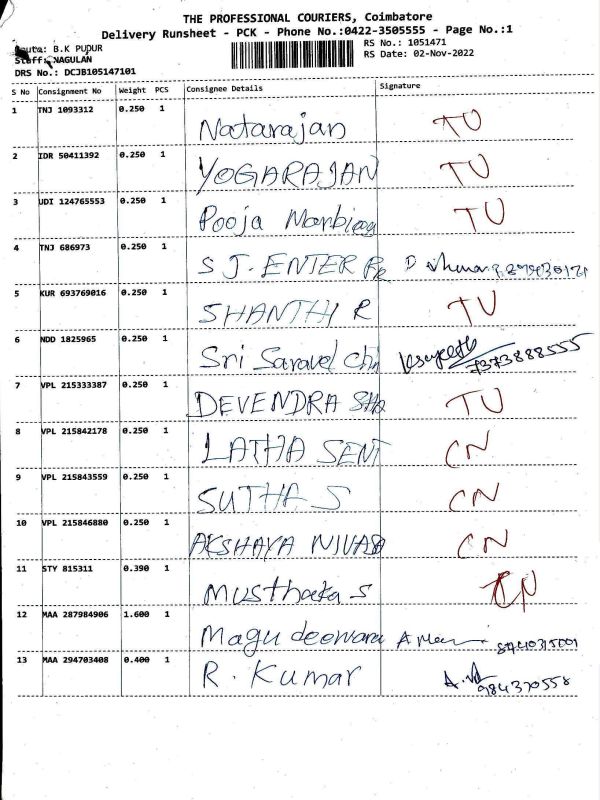 THE PROFESSIONAL COURIERS, Coimbatore
Delivery Runsheet - PCK - Phone No.:0422-3505555 - Page No.:1
Route: B.K PUDUR
RS No.: 1051471
Staff: NAGULAN
RS Date: 02-Nov-2022
DRS No.: DCJB105147101
S No Consignment No Weight PCS Consignee Details Signature
1 TNJ 1093312 0.250 1 Natarajan TU
2 IDR 50411392 0.250 1 YOGARAJAN TU
3 UDI 124765553 0.250 1 Pooja TU
4 TNJ 686973 0.250 1 S J. ENTER
5 KUR 693769016 0.250 1 SHANTHI R TU
6 NDD 1825965 0.250 1 Sri 7373888555
7 VPL 215333387 0.250 1 DEVENDRA SHA TU
8 VPL 215842178 0.250 1 LATHA SENT CN
9 VPL 215843559 0.250 1 SUTHA S CN
10 VPL 215846880 0.250 1 AKSHAYA NIVASA CN
11 STY 815311 0.390 1 S CN
12 MAA 287984906 1.600 1 Magu
13 MAA 294703408 0.400 1 R. Kumar 984370558